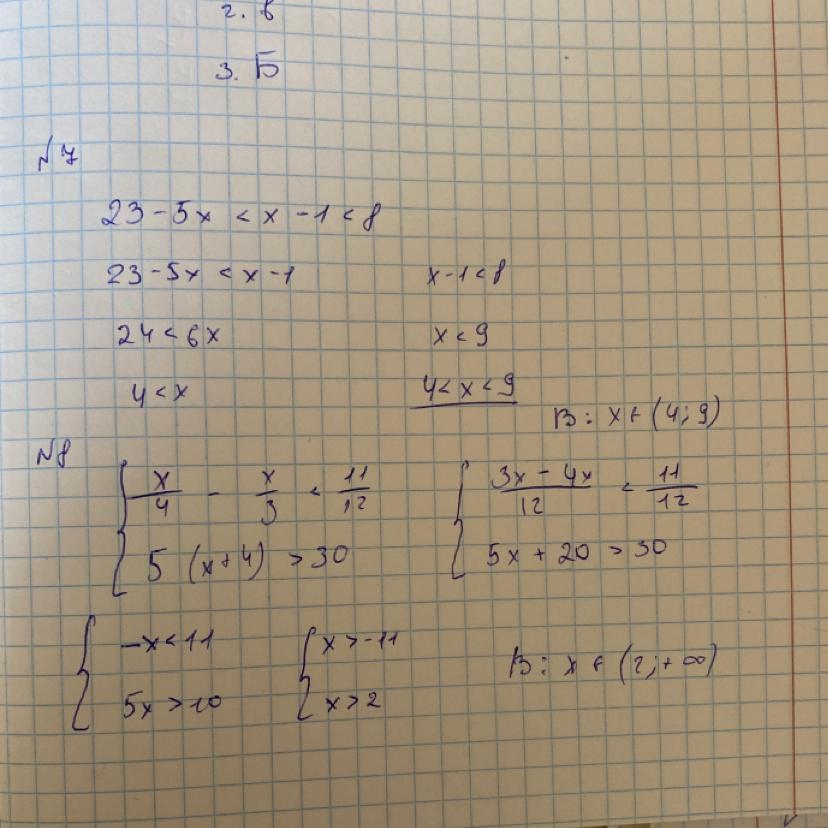 2. в
3. Б
№7
23 - 5x < x - 1 < 8
23 - 5x < x - 1 x - 1 < 8
24 < 6x x < 9
4 < x 4 < x < 9
В: x ∈ (4; 9)
№8
{ x/4 - x/3 < 11/12 { (3x - 4x)/12 < 11/12
5 (x + 4) > 30 5x + 20 > 30
{ -x < 11 { x > -11
5x > 10 x > 2 В: x ∈ (2; +∞)